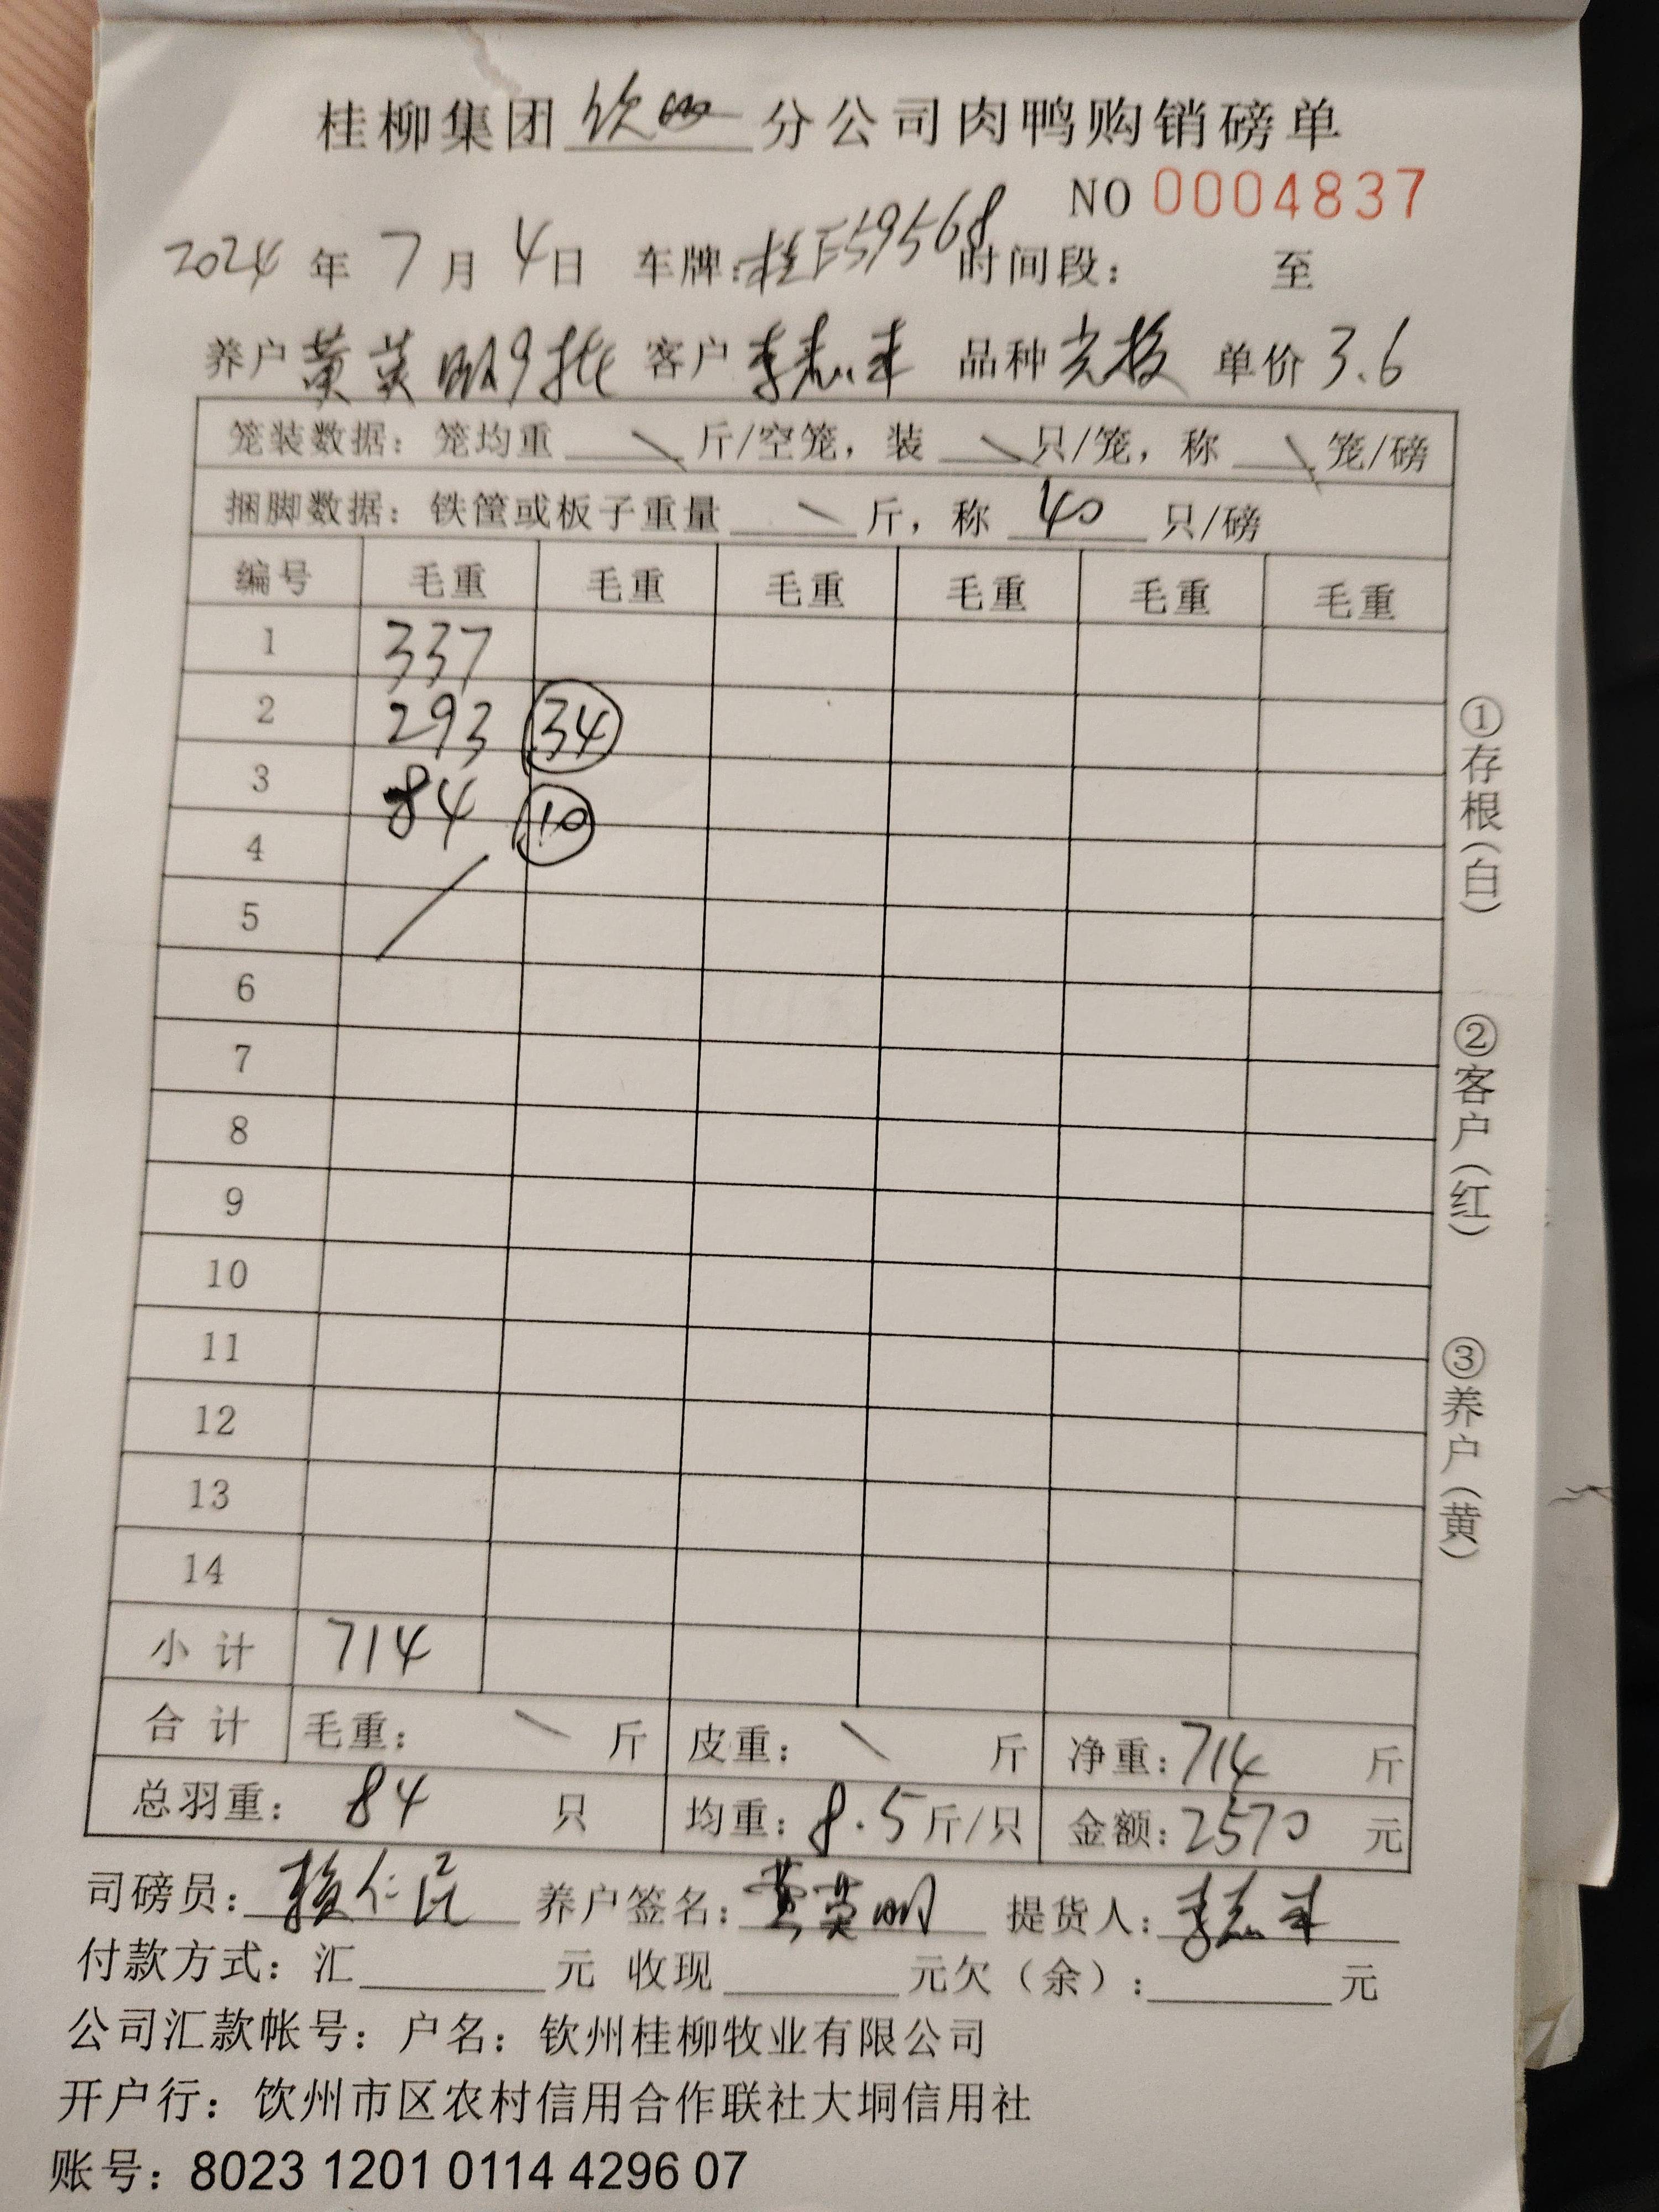 桂柳集团 钦州 分公司肉鸭购销磅单
NO 0004837
2024 年 7 月 4 日 车牌：桂E59568 时间段： 至
养户 黄英明9批 客户 李志丰 品种 单价 3.6
笼装数据：笼均重 \ 斤/空笼，装 \ 只/笼，称 \ 笼/磅
捆脚数据：铁筐或板子重量 \ 斤，称 40 只/磅
编号 毛重 毛重 毛重 毛重 毛重 毛重
1 337
2 293 34
3 84 10
4
5
6
7
8
9
10
11
12
13
14
小计 714
合计 毛重： \ 斤 皮重： \ 斤 净重：714 斤
总羽重： 84 只 均重：8.5斤/只 金额：2570 元
司磅员： 养户签名：黄英明 提货人：李志丰
付款方式：汇 元 收现 元欠（余）： 元
公司汇款帐号：户名：钦州桂柳牧业有限公司
开户行：钦州市区农村信用合作联社大垌信用社
账号：8023 1201 0114 4296 07
①存根（白）
②客户（红）
③养户（黄）